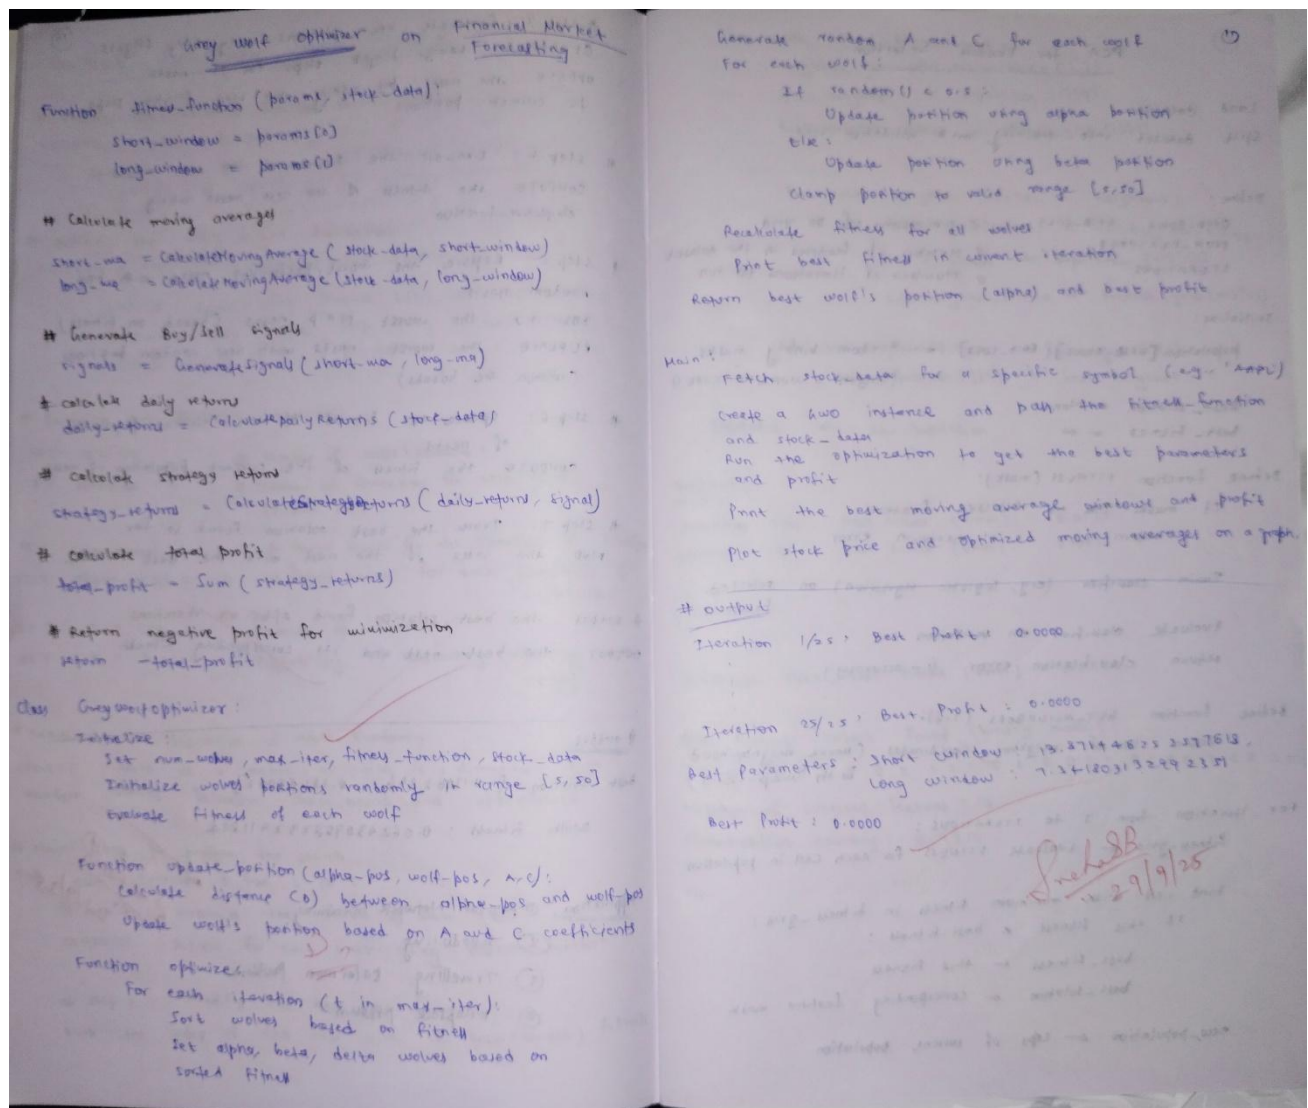 Grey wolf optimizer on Financial Market
Forecasting
Function fitness_function (params, stock_data):
short_window = params[0]
long_window = params[1]
# Calculate moving averages
short_ma = CalculateMovingAverage (stock_data, short_window)
long_ma = CalculateMovingAverage (stock_data, long_window)
# Generate Buy/Sell signals
signals = GenerateSignals (short_ma, long_ma)
# calculate daily returns
daily_returns = CalculateDailyReturns (stock_data)
# calculate strategy returns
strategy_returns = CalculateStrategyReturns (daily_returns, signal)
# calculate total profit
total_profit = Sum (strategy_returns)
# Return negative profit for minimization
return -total_profit
Class GreyWolfOptimizer:
Initialize:
Set num_wolves, max_iter, fitness_function, stock_data
Initialize wolves' positions randomly in range [5, 50]
Evaluate fitness of each wolf
Function update_position (alpha_pos, wolf_pos, A, C):
Calculate distance (D) between alpha_pos and wolf_pos
Update wolf's position based on A and C coefficients
Function optimize:
For each iteration (t in max_iter):
Sort wolves based on fitness
Set alpha, beta, delta wolves based on
sorted fitness
Generate random A and C for each wolf
For each wolf:
If random() < 0.5:
Update position using alpha position
Else:
Update position using beta position
Clamp position to valid range [5, 50]
Recalculate fitness for all wolves
Print best fitness in current iteration
Return best wolf's position (alpha) and best profit
Main:
Fetch stock_data for a specific symbol (e.g. 'AAPL')
Create a GWO instance and pass the fitness_function
and stock_data
Run the optimization to get the best parameters
and profit
Print the best moving average windows and profit
Plot stock price and optimized moving averages on a graph.
# Output
Iteration 1/25, Best Profit: 0.0000
Iteration 25/25, Best Profit: 0.0000
Best Parameters: Short window:
Long window:
Best Profit: 0.0000
29/9/25